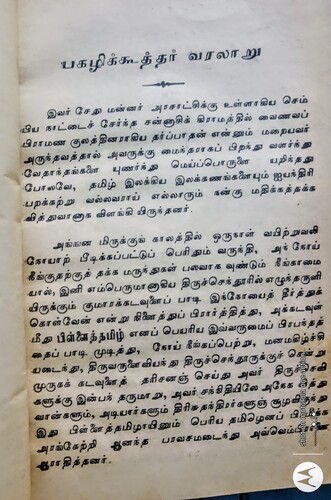 பகழிக்கூத்தர் வரலாறு
இவர் சேது மன்னர் அரசாட்சிக்கு உள்ளாகிய செம்
பிய நாட்டைச் சேர்ந்த சன்னாசிக் கிராமத்தில் வைணவப்
பிராமண குலத்தினராகிய தர்ப்பாதன் என்னும் மறையவர்
அருந்தவத்தால் அவருக்கு மைந்தராகப் பிறந்து வளர்ந்து
வேதாந்தங்களை யுணர்ந்து மெய்ப்பொருளை யறிந்தது
போலவே, தமிழ் இலக்கிய இலக்கணங்களையும் ஐயந்திரி
பறக்கற்று வல்லவராய் எல்லாரும் நன்கு மதிக்கத்தக்க
வித்துவானாக விளங்கி யிருந்தனர்.
அங்ஙன மிருக்குங் காலத்தில் ஒருநாள் வயிற்றுவலி
நோயாற் பீடிக்கப்பட்டுப் பெரிதும் வருந்தி, அந் நோய்
நீங்குதற்குத் தக்க மருந்துகள் பலவாகவுண்டும் நீங்காமை
யால், இனி எம்பெருமானாகிய திருச்செந்தூரில் எழுந்தருளி
யிருக்கும் குமாரக்கடவுளைப் பாடி இந்நோயைத் தீர்த்துக்
கொள்வேன் என்று நினைத்துப் பிரார்த்தித்து, அக்கடவுள்
மீது பிள்ளைத்தமிழ் எனப் பெயரிய இவ்வருமைப் பிரபந்தத்
தைப் பாடி முடித்து, நோய் நீங்கப்பெற்று, மனமகிழ்ச்சி
யடைந்து, திருவருளைவியந்து திருச்செந்தூருக்குச் சென்று
முருகக் கடவுளைத் தரிசனஞ் செய்து அவர் திருச்செவி
களுக்கு இன்பந் தருமாறு, அவர் சந்நிதியிலே அநேக வித்து
வான்களும், அடியார்களும் திரிசுதந்திரர்களுஞ் சூழவிருந்து
இது பிள்ளைத்தமிழாயினும் பெரிய தமிழெனப்
அரங்கேற்றி ஆனந்த பரவசமடைந்து
ஆராதித்தனர்.